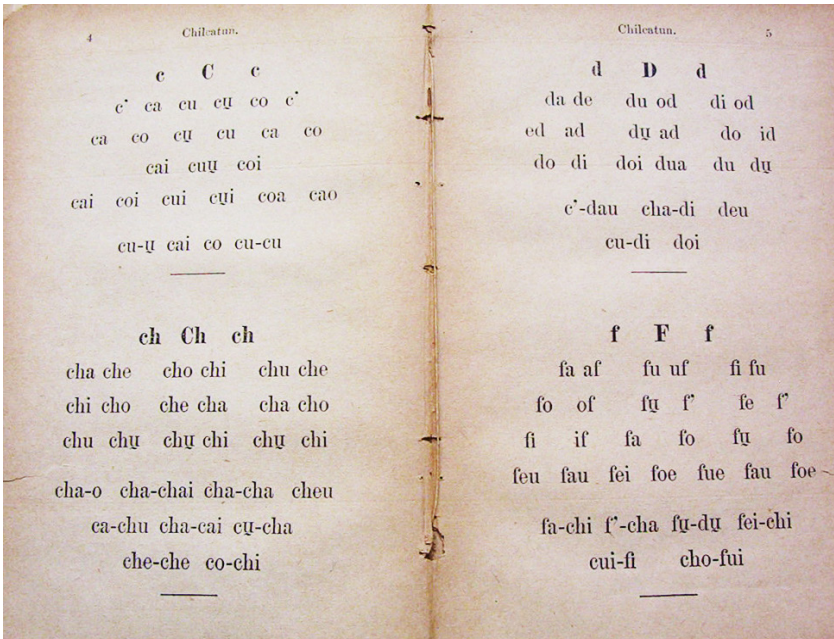 4 Chilcatun.
c C c
c' ca cu cṳ co c'
ca co cṳ cu ca co
cai cuṳ coi
cai coi cui cṳi coa cao
cu-ṳ cai co cu-cu
ch Ch ch
cha che cho chi chu che
chi cho che cha cha cho
chu chṳ chṳ chi chṳ chi
cha-o cha-chai cha-cha cheu
ca-chu cha-cai cṳ-cha
che-che co-chi
Chilcatun. 5
d D d
da de du od di od
ed ad dṳ ad do id
do di doi dua du dṳ
c'-dau cha-di deu
cu-di doi
f F f
fa af fu uf fi fu
fo of fṳ f' fe f'
fi if fa fo fṳ fo
feu fau fei foe fue fau foe
fa-chi f'-cha fṳ-dṳ fei-chi
cui-fi cho-fui